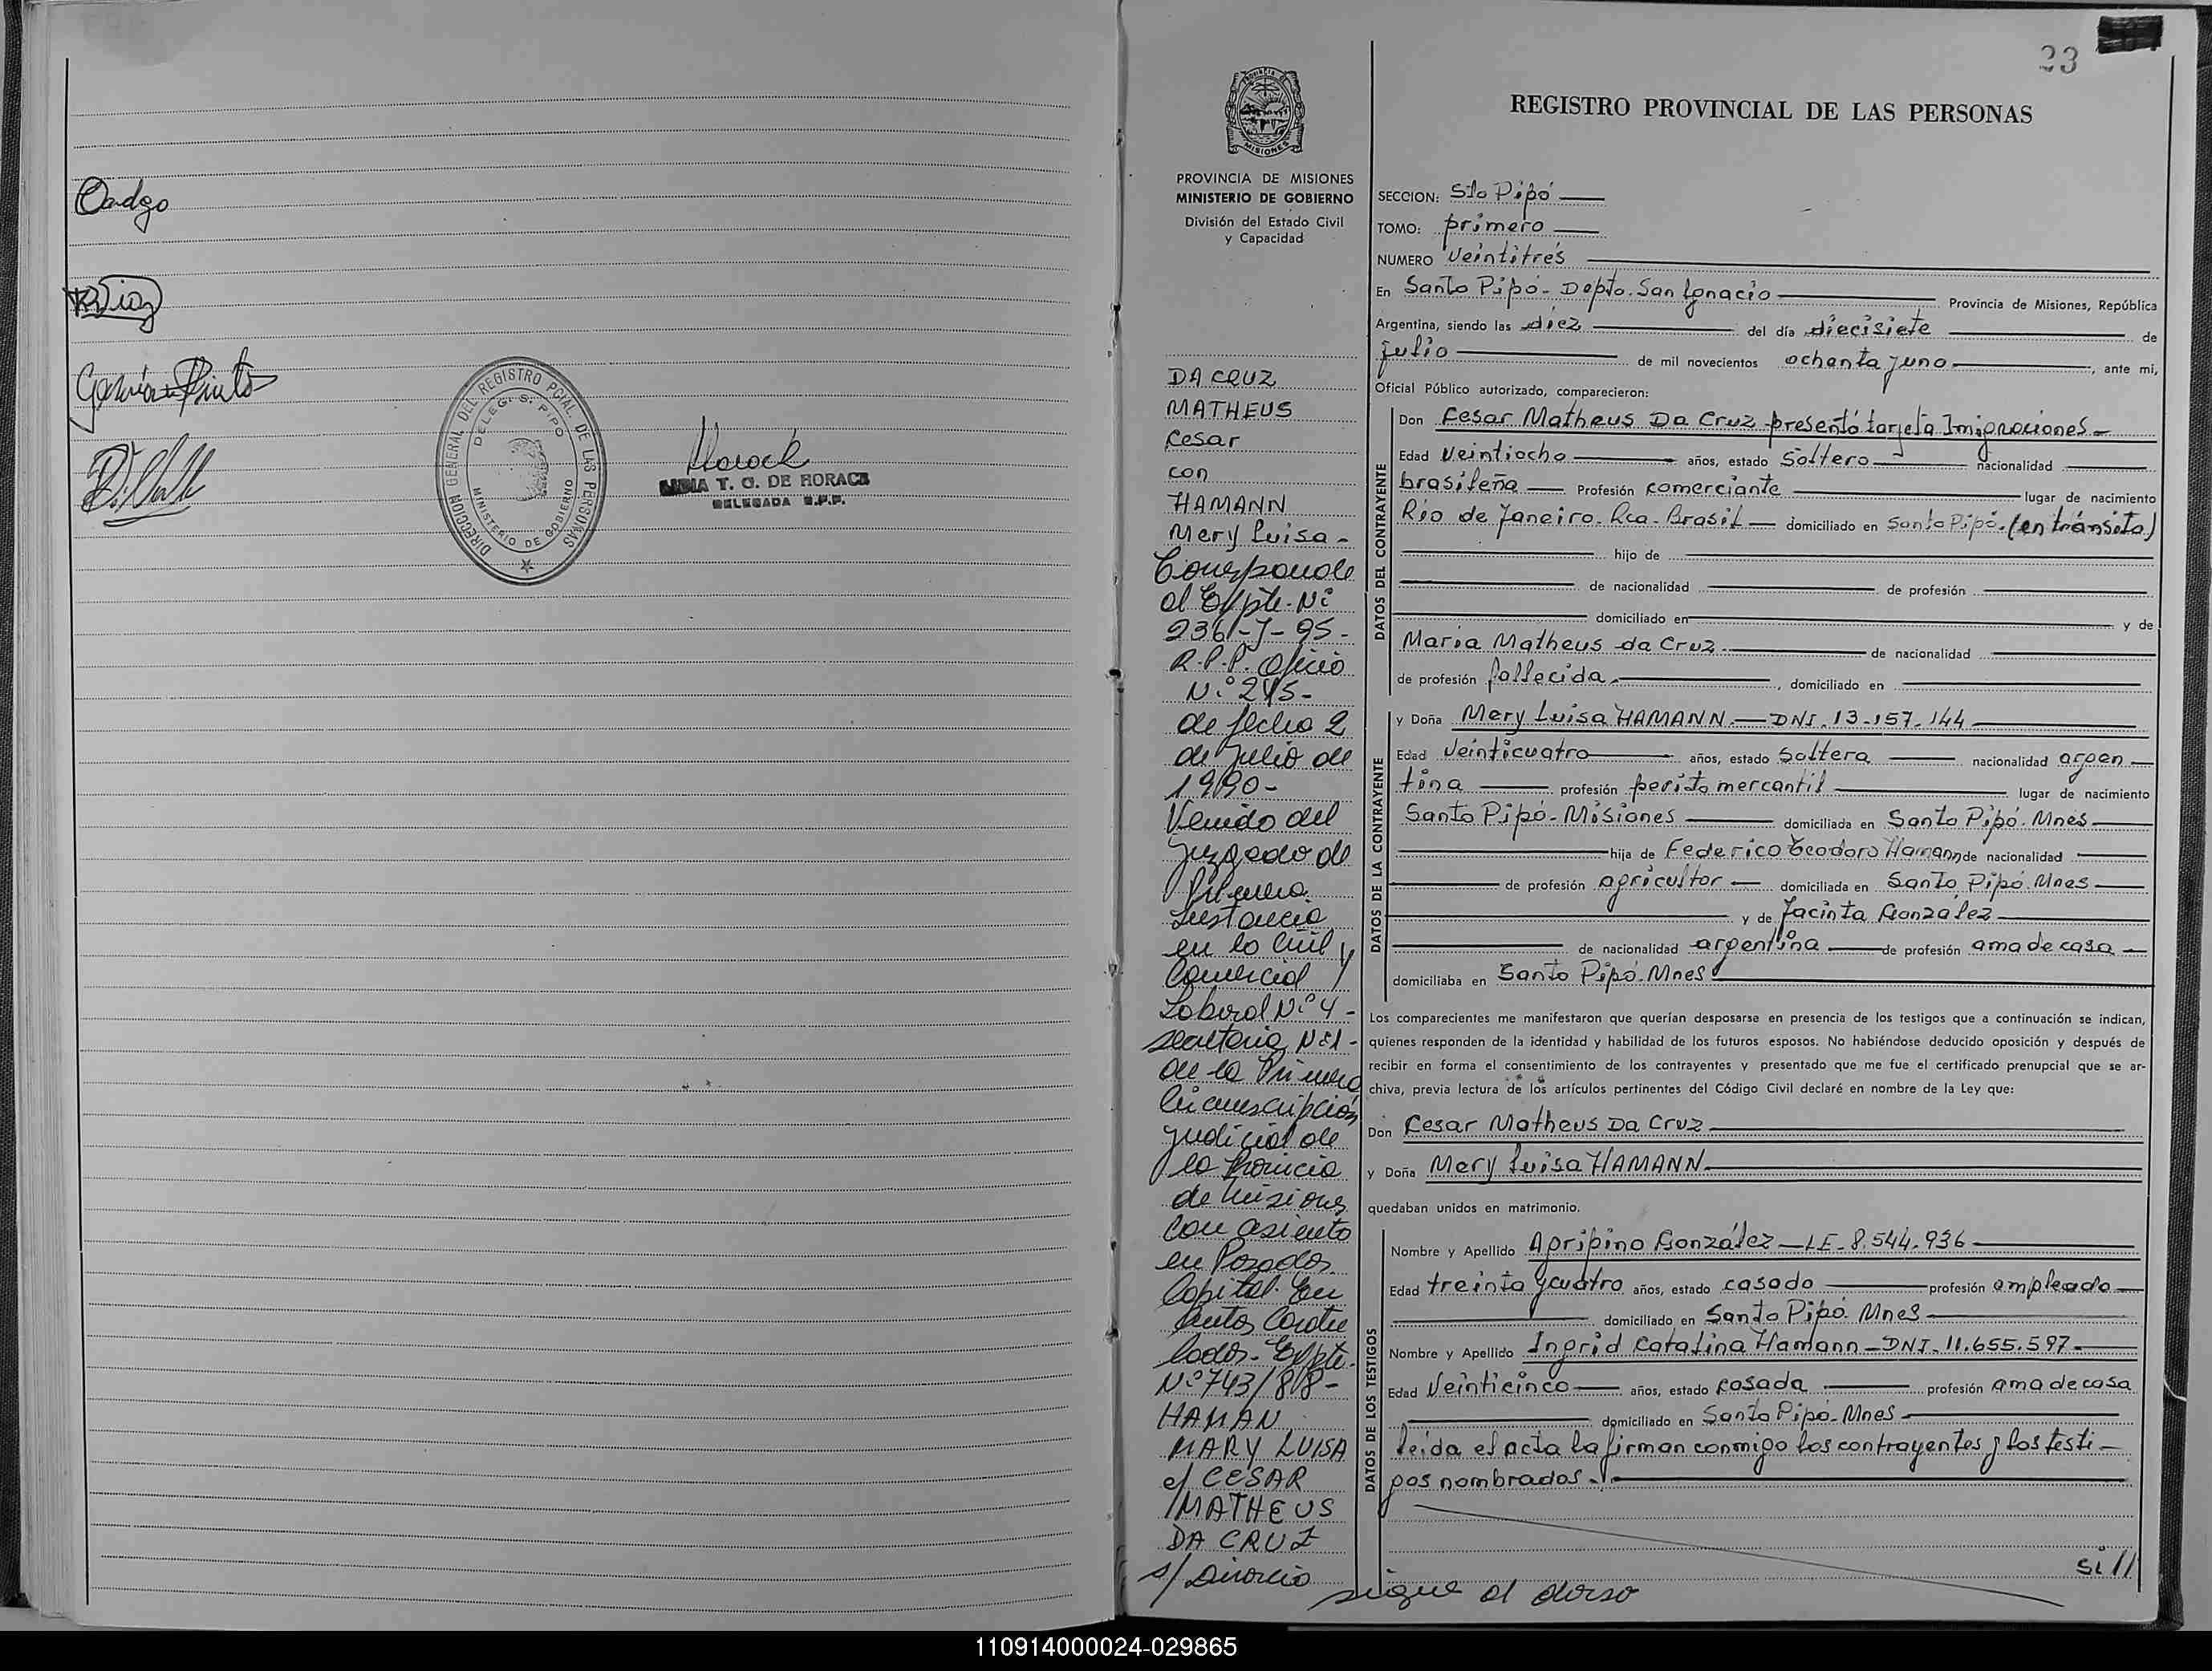 Diaz
DIRECCION GENERAL DEL REGISTRO PCIAL. DE LAS PERSONAS
DELEG. S. PIPO
MINISTERIO DE GOBIERNO
T. G. DE HORACK
DELEGADA R.P.P.
23
PROVINCIA DE
MISIONES
PROVINCIA DE MISIONES
MINISTERIO DE GOBIERNO
División del Estado Civil
y Capacidad
DA CRUZ
MATHEUS
Cesar
con
HAMANN
Mery Luisa -
Corresponde
al Expte. Nº
236-J-95-
R.P.P. Oficio
Nº 245-
de fecha 2
de julio de
1990-
Venido del
Juzgado de
Primera
Instancia
en lo Civil y
Comercial y
Laboral Nº 4 -
Secretaria Nº1 -
de la Primera
Circunscripción
Judicial de
la Provincia
de Misiones
con asiento
en Posadas
Capital. En
Autos Caratu
lados. Expte.
Nº 743/88-
HAMAN
MARY LUISA
c/ CESAR
MATHEUS
DA CRUZ
s/ Divorcio
REGISTRO PROVINCIAL DE LAS PERSONAS
SECCION: Sto Pipó
TOMO: primero
NUMERO Veintitrés
En Santo Pipó - Depto. San Ignacio Provincia de Misiones, República
Argentina, siendo las diez del día diecisiete de
julio de mil novecientos ochenta y uno, ante mí,
Oficial Público autorizado, comparecieron:
DATOS DEL CONTRAYENTE
Don Cesar Matheus Da Cruz presentó tarjeta Imigraciones -
Edad Veintiocho años, estado Soltero nacionalidad
brasileña Profesión comerciante lugar de nacimiento
Río de Janeiro. Rca. Brasil domiciliado en Santo Pipó. (en tránsito)
hijo de
de nacionalidad de profesión
domiciliado en y de
Maria Matheus da Cruz de nacionalidad
de profesión fallecida, domiciliado en
DATOS DE LA CONTRAYENTE
y Doña Mery Luisa HAMANN - DNI. 13.157.144
Edad Veinticuatro años, estado soltera nacionalidad argen
tina profesión perito mercantil lugar de nacimiento
Santo Pipó - Misiones domiciliada en Santo Pipó. Mnes
hija de Federico Teodoro Hamann, de nacionalidad
de profesión agricultor domiciliada en Santo Pipó. Mnes
y de Jacinta González
de nacionalidad argentina de profesión ama de casa
domiciliaba en Santo Pipó. Mnes
Los comparecientes me manifestaron que querían desposarse en presencia de los testigos que a continuación se indican,
quienes responden de la identidad y habilidad de los futuros esposos. No habiéndose deducido oposición y después de
recibir en forma el consentimiento de los contrayentes y presentado que me fue el certificado prenupcial que se ar-
chiva, previa lectura de los artículos pertinentes del Código Civil declaré en nombre de la Ley que:
Don Cesar Matheus Da Cruz
y Doña Mery Luisa HAMANN
quedaban unidos en matrimonio.
DATOS DE LOS TESTIGOS
Nombre y Apellido Agripino González - LE. 8.544.936
Edad treinta y cuatro años, estado casado profesión empleado
domiciliado en Santo Pipó. Mnes
Nombre y Apellido Ingrid Catalina Hamann - DNI. 11.655.597
Edad Veinticinco años, estado casada profesión ama de casa
domiciliado en Santo Pipó - Mnes
leída el acta la firman conmigo los contrayentes y los testi-
gos nombrados.
si//
sigue al dorso
110914000024-029865